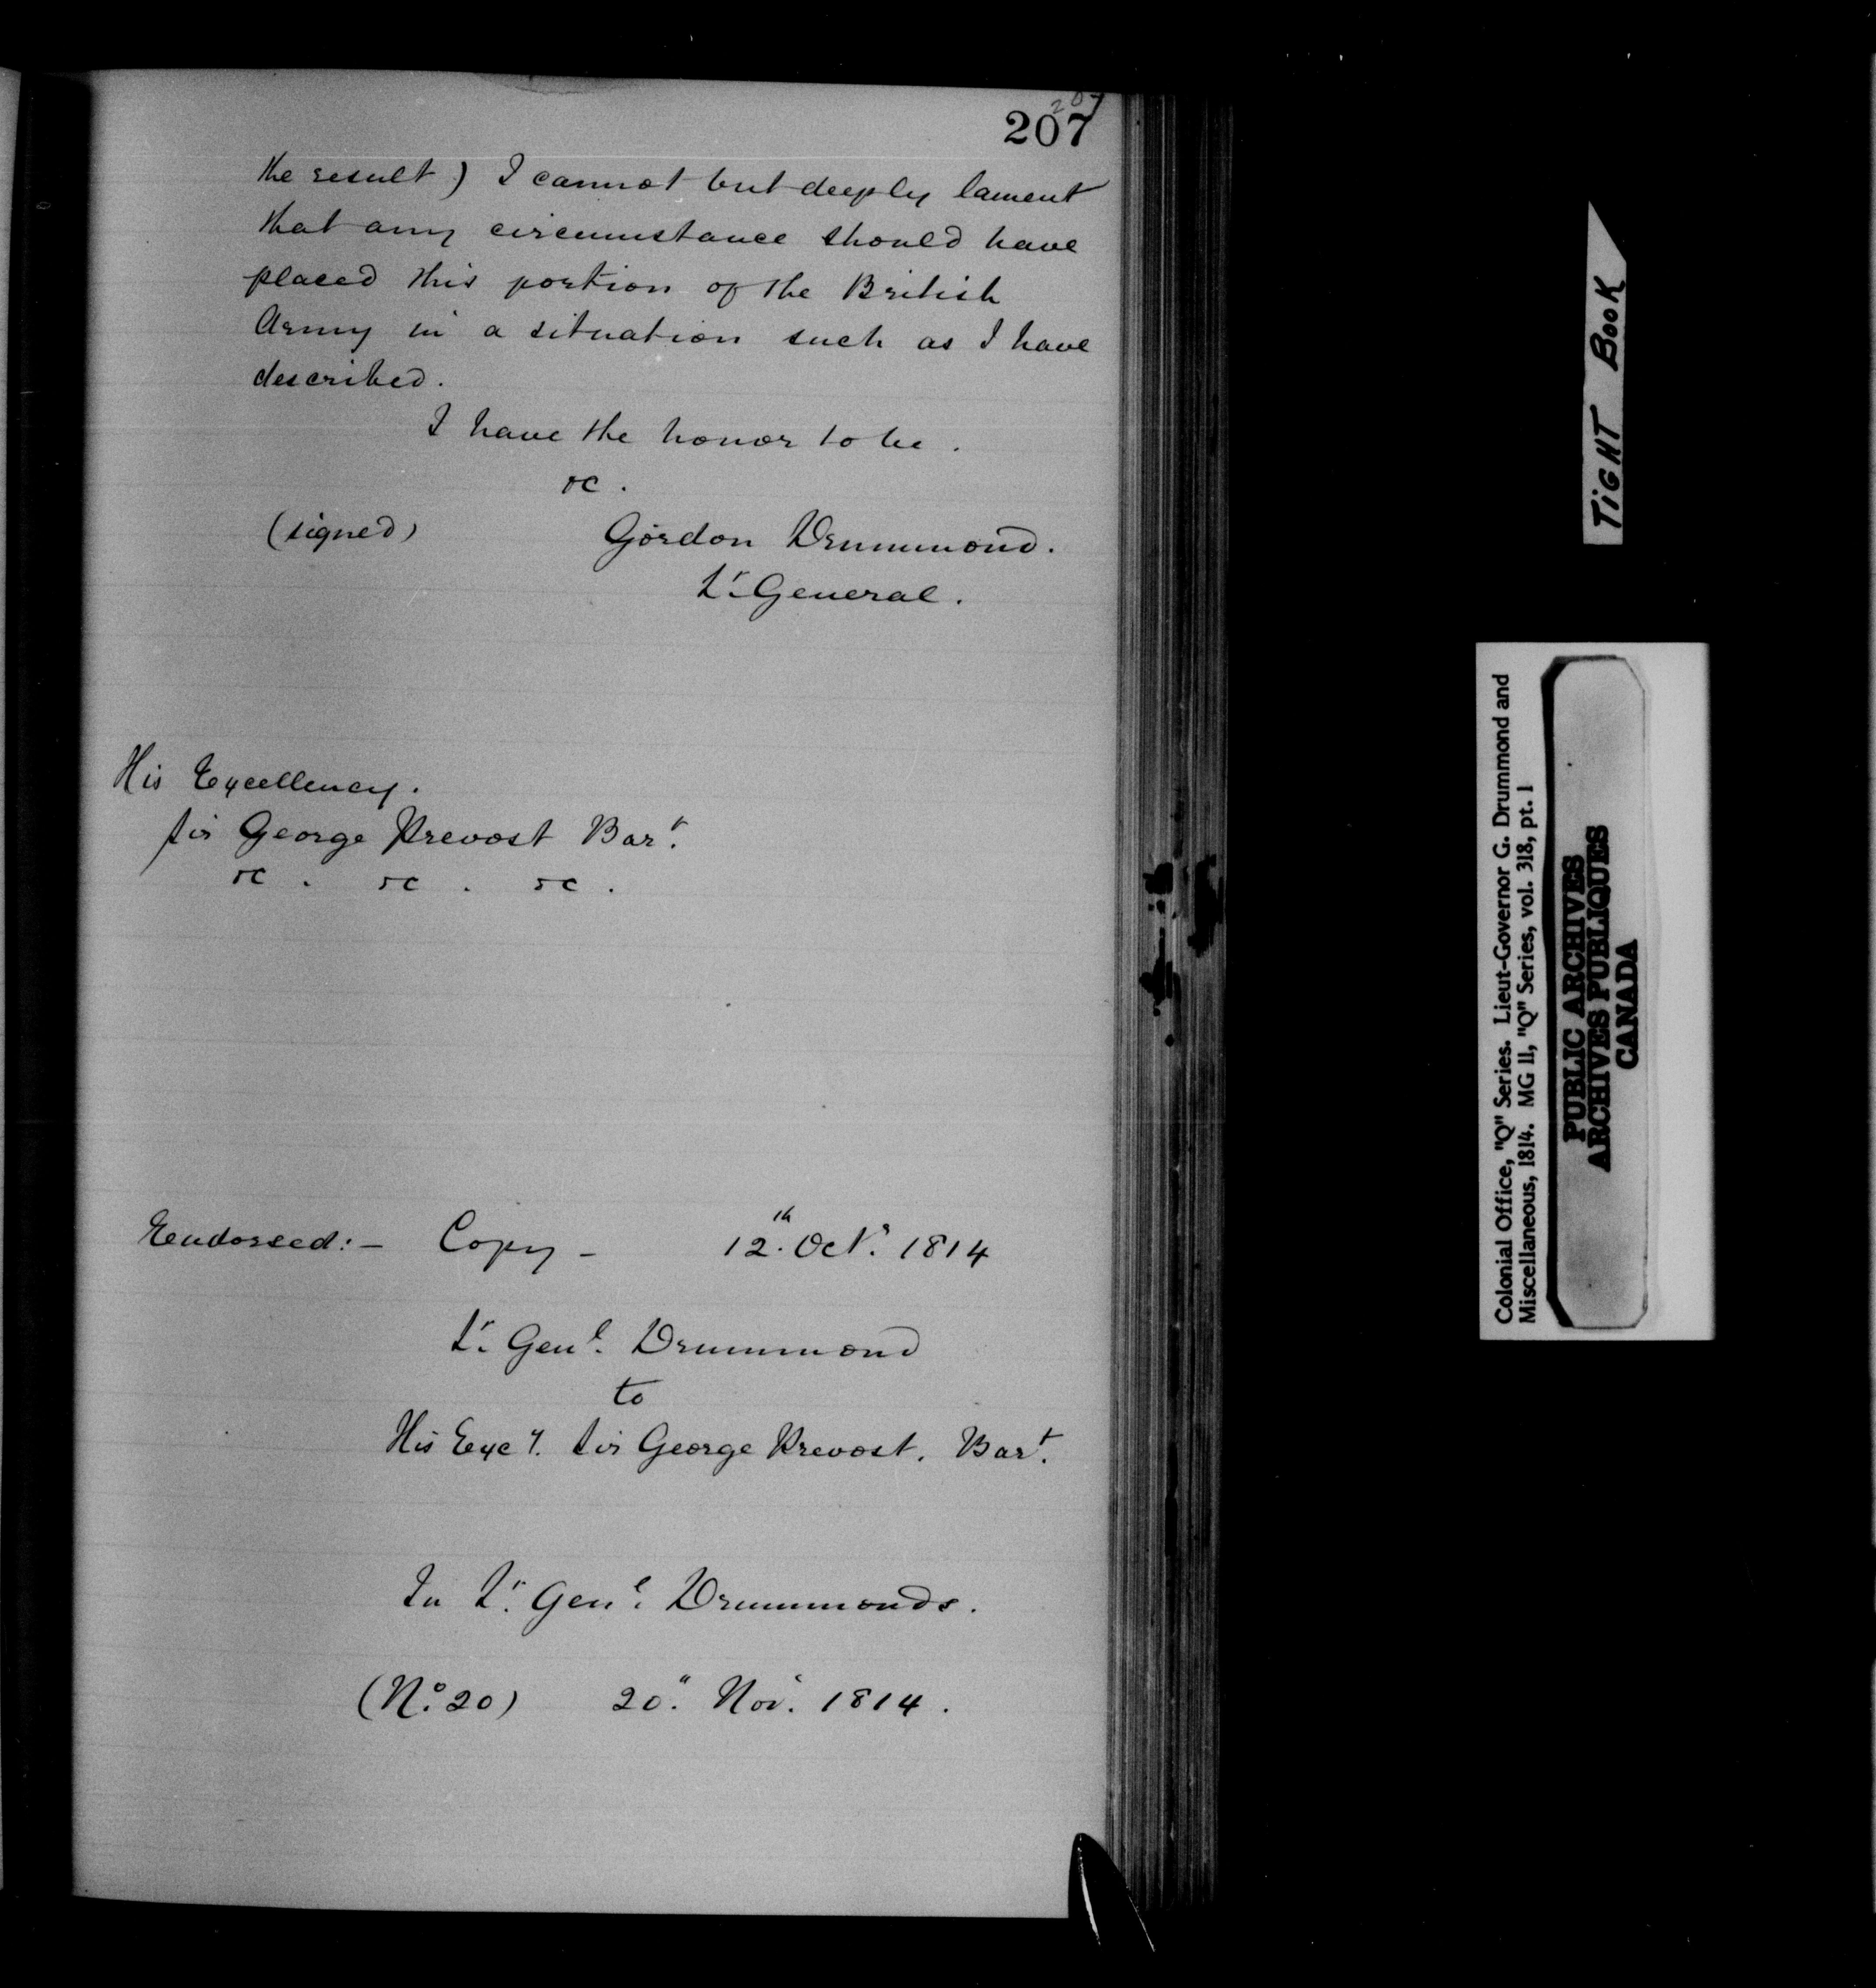 207
207
the result) I cannot but deeply lament
that any circumstance should have
placed this portion of the British
Army in a situation such as I have
described.
I have the honor to be.
&c.
(signed) Gordon Drummond.
Lt General.
His Excellency.
Sir George Prevost Bart.
&c. &c. &c.
Endorsed:- Copy - 12th Octr. 1814
Lt. Genl. Drummond
to
His Excy. Sir George Prevost. Bart.
In Lt. Genl. Drummonds.
(No. 20) 20" Novr. 1814.
TIGHT BOOK
Colonial Office, "Q" Series. Lieut-Governor G. Drummond and
Miscellaneous, 1814. MG 11, "Q" Series, vol. 318, pt. 1
PUBLIC ARCHIVES
ARCHIVES PUBLIQUES
CANADA